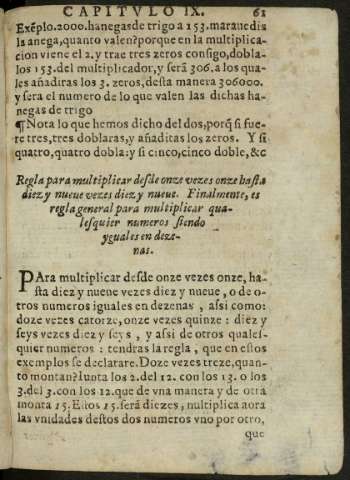 CAPITVLO IX. 61
Exẽplo.2000.hanegas de trigo a 153.marauedis
la anega,quanto valen?porque en la multiplica-
cion viene el 2.y trae tres zeros consigo,dobla-
los 153.del multiplicador,y ferã 306.a los qua-
les añadiras los 3. zeros,desta manera 306000.
y sera el numero de lo que valen las dichas ha-
negas de trigo
¶Nota lo que hemos dicho del dos,porq̃ si fue-
re tres,tres doblaras,y añaditas los zeros. Y si
quatro,quatro dobla:y si cinco,cinco doble,&c
Regla para multiplicar desde onze vezes onze hasta
diez y nueue vezes diez y nueue. Finalmente, es
regla general para multiplicar qua-
lesquier numeros siendo
yguales en deze-
nas.
PAra multiplicar desde onze vezes onze, ha-
sta diez y nueue vezes diez y nueue, o de o-
tros numeros iguales en dezenas, assi como:
doze vezes catorze, onze vezes quinze : diez y
seys vezes diez y seys, y assi de otros quales-
quier numeros : tendras la regla, que en estos
exemplos se declarare. Doze vezes treze,quan-
to montan?Iunta los 2.del 12. con los 13. o los
3.del 3.con los 12.que de vna manera y de otra
monta 15.Estos 15.serã diezes,multiplica aora
las vnidades destos dos numeros vno por otro,
que